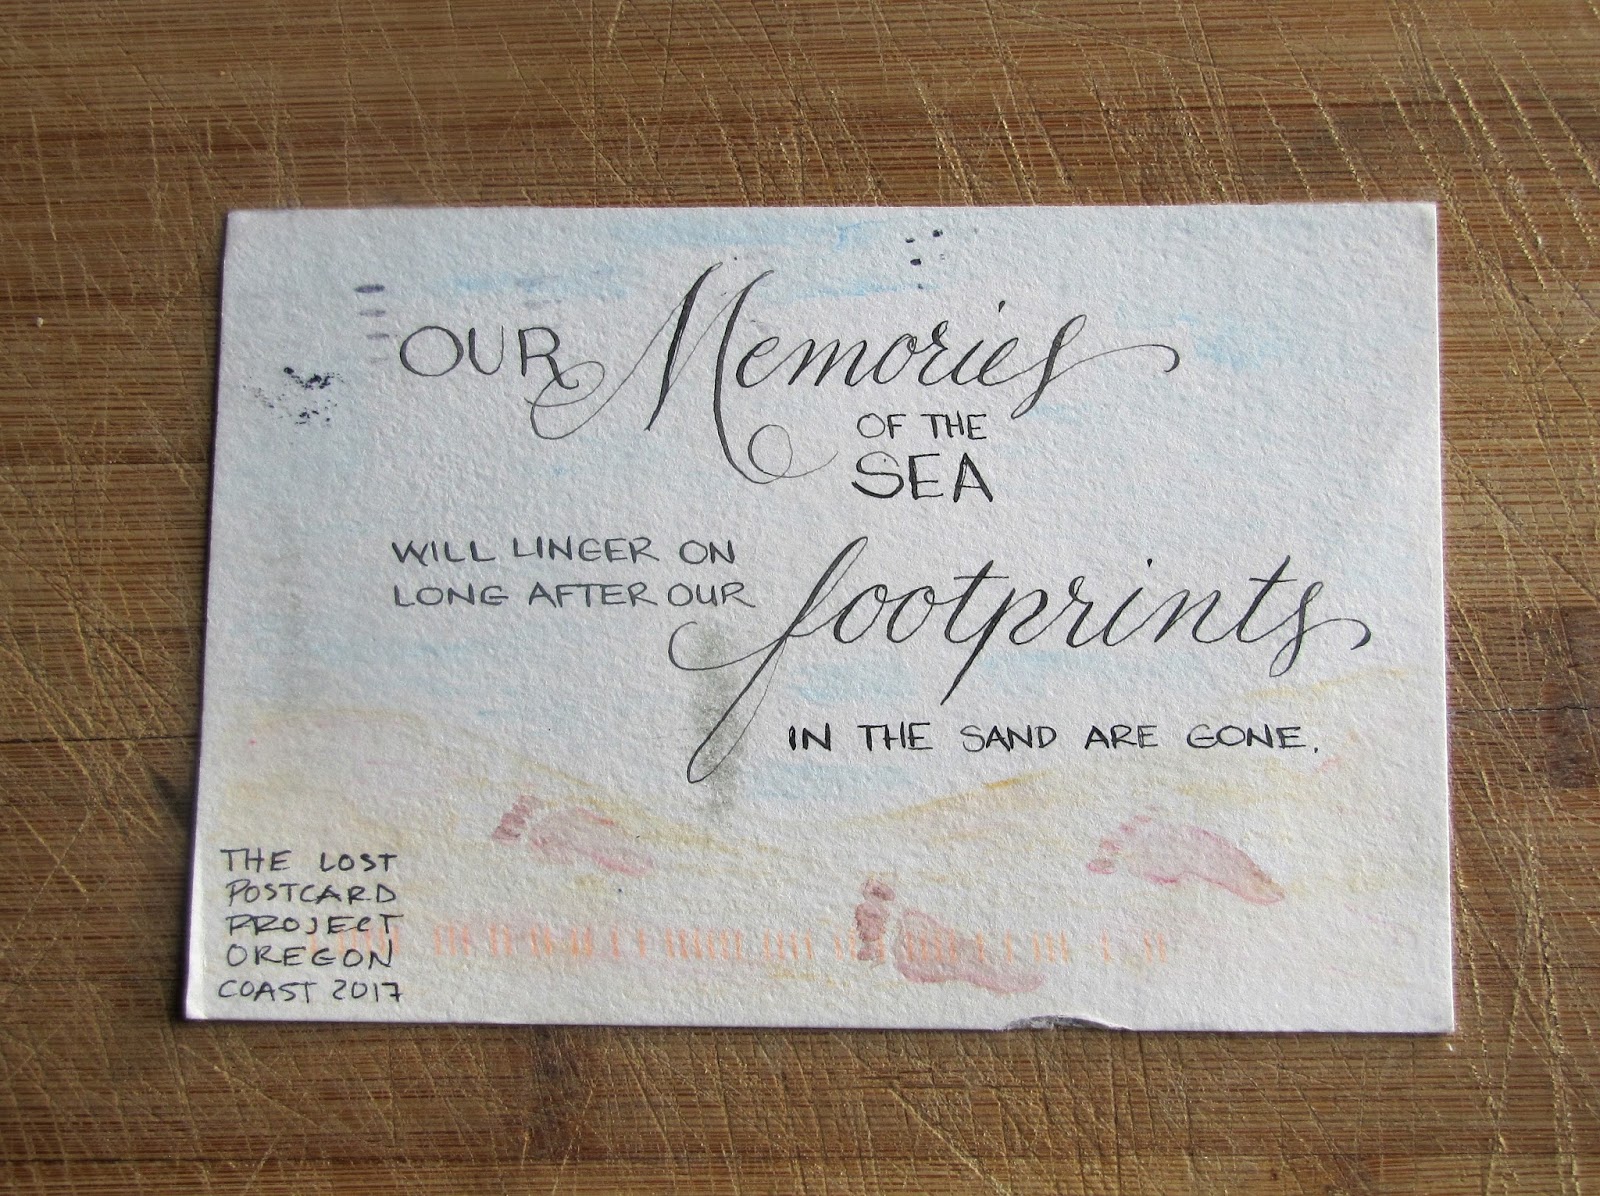 OUR Memories
OF THE
SEA
WILL LINGER ON
LONG AFTER OUR footprints
IN THE SAND ARE GONE.
THE LOST
POSTCARD
PROJECT
OREGON
COAST 2017